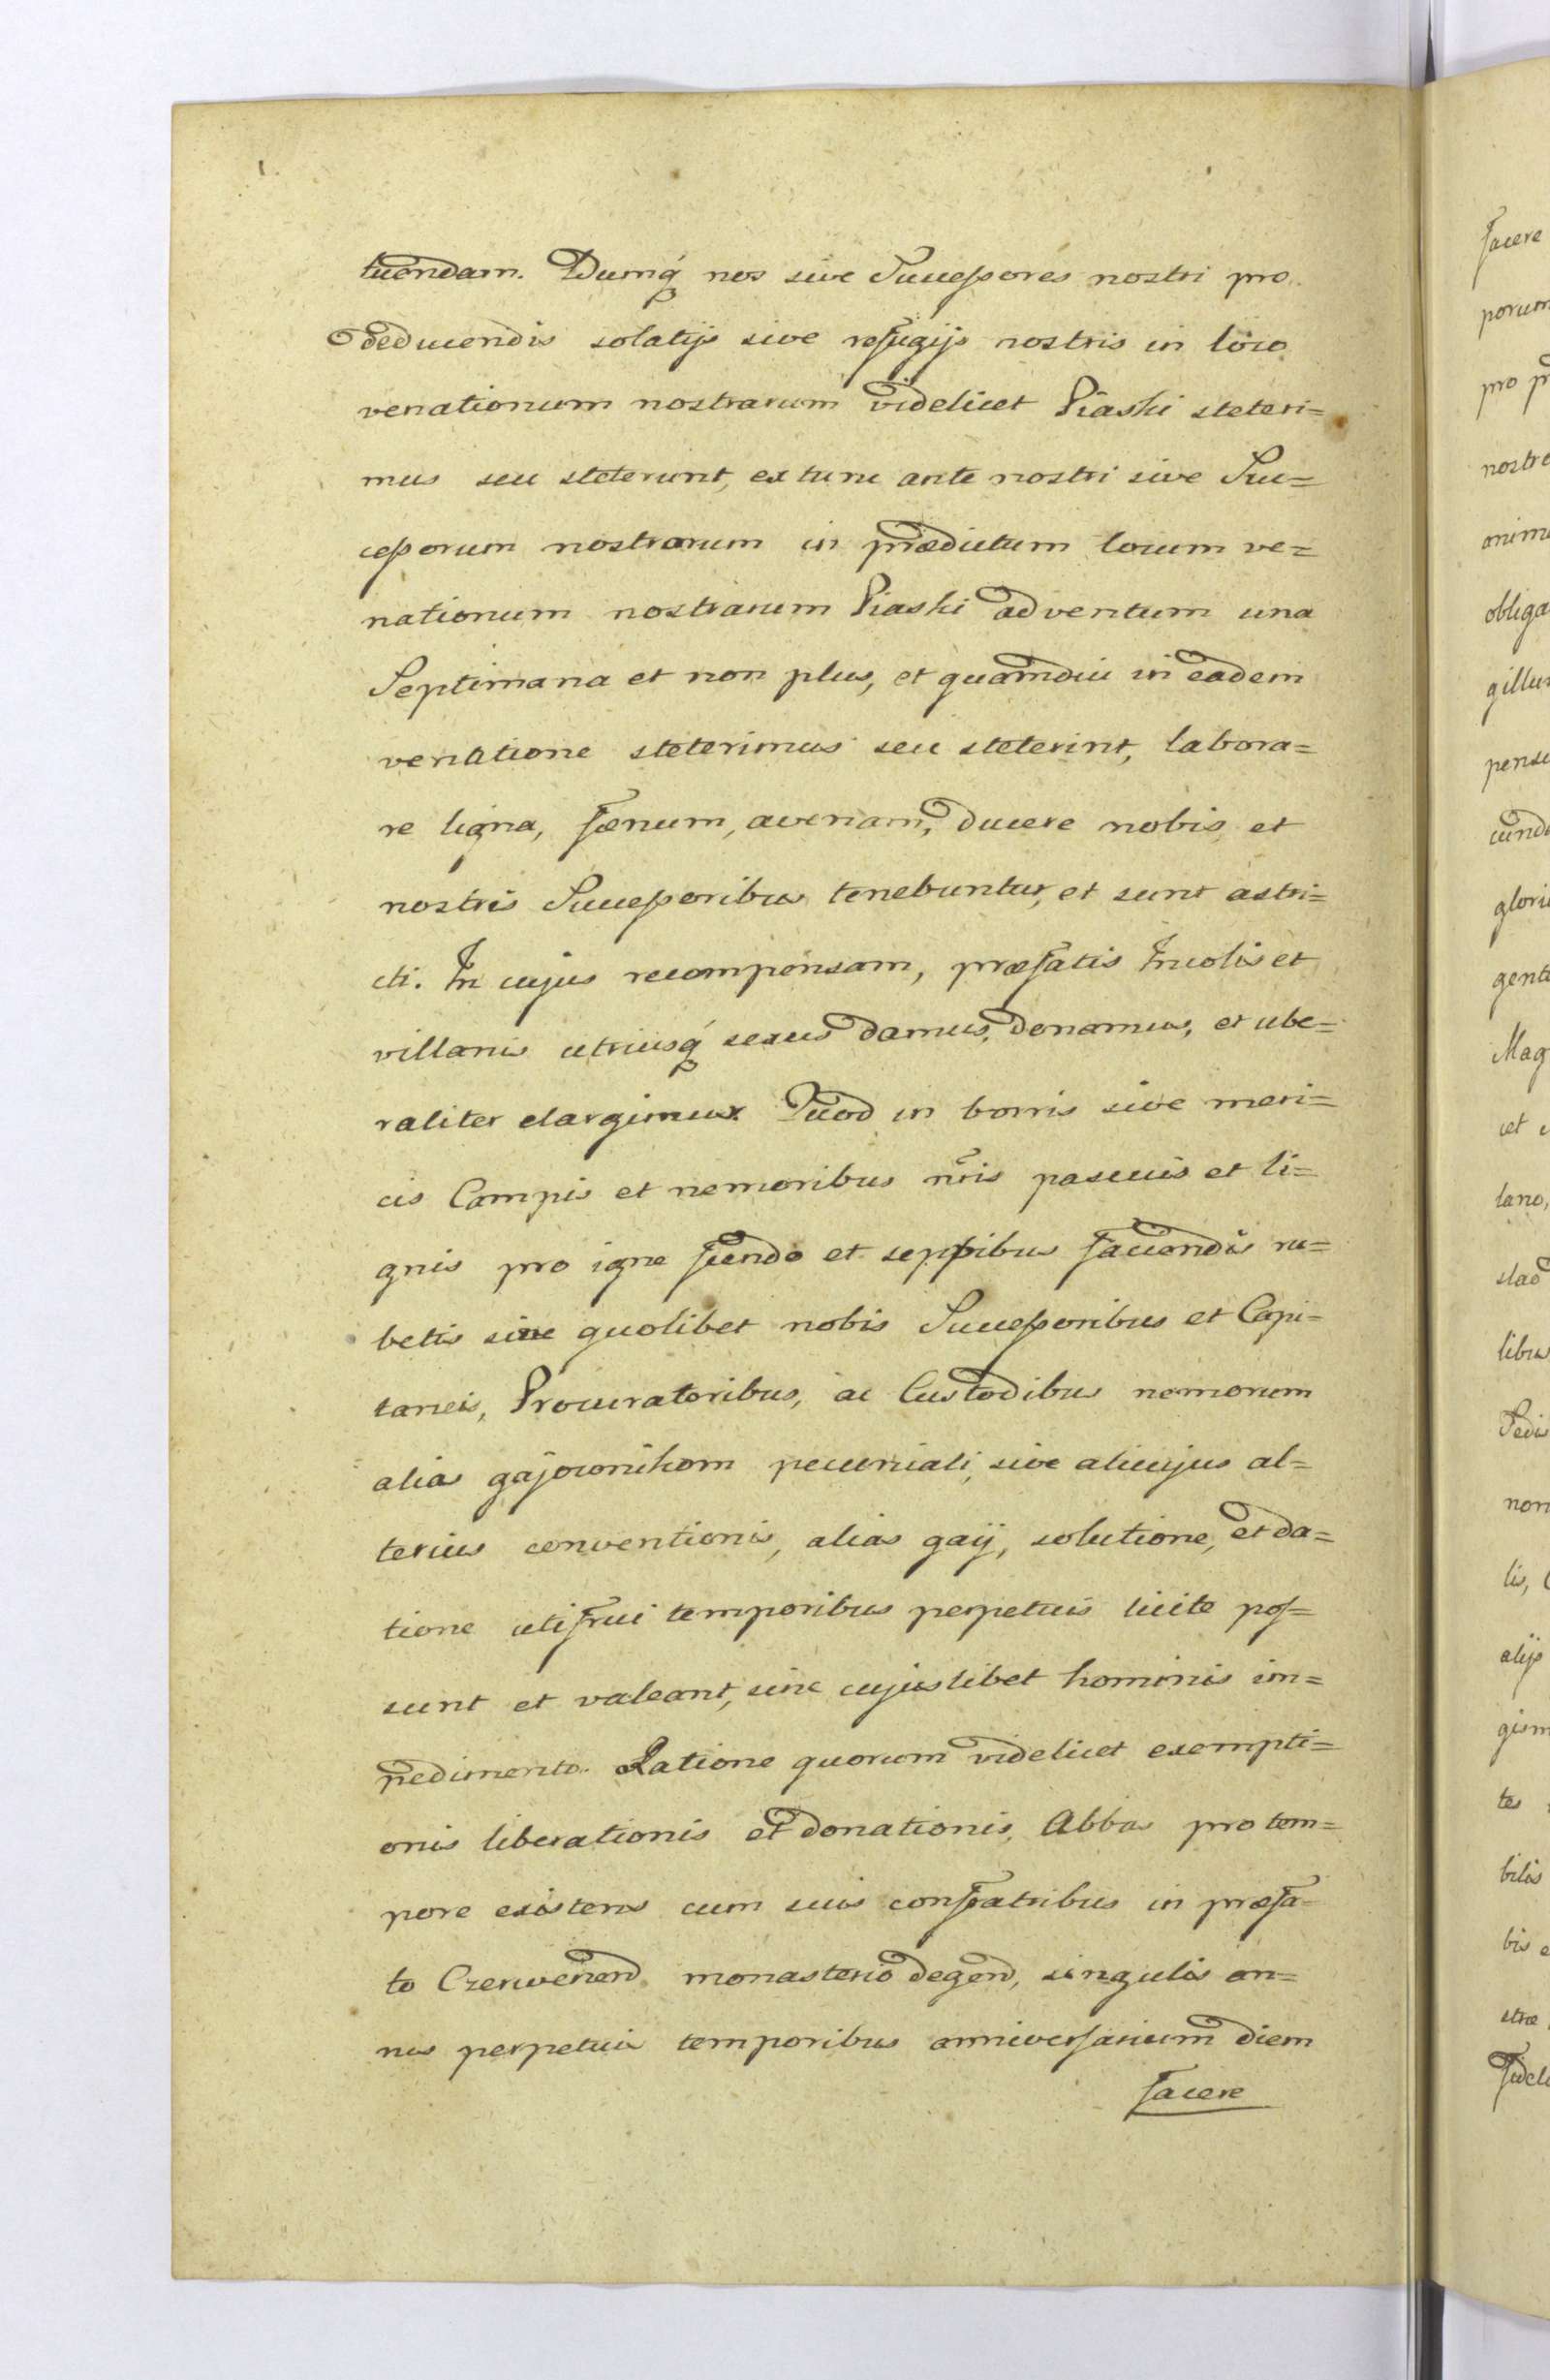 tuendam. Dumq́ nos sive Successores nostri pro
deducendis solatijs sive refugijs nostris in loco
venationum nostrarum videlicet Piaski steteri=
mus seu steterunt, ex tunc ante nostri sive Suc=
cessorum nostrorum in prædictum locum ve=
nationum nostrarum Piaski adventum una
Septimana et non plus, et quamdiu in eadem
venatione steterimus seu steterint, labora=
re ligna, fœnum, avenam, ducere nobis et
nostris Successoribus tenebuntur, et sunt astri=
cti. In cujus recompensam, præfatis Incolis et
villanis utriusq́ sexus damus, donamus, et ube=
raliter elargimur. Quod in borris sive meri=
cis Campis et nemoribus nr̃is pascuis et li=
gnis pro igne fiendo et seppibus faciendis ru=
betis sine quolibet nobis Successoribus et Capi=
taneis, Procuratoribus, ac Custodibus nemorum
alias gajownikom pecuniali, sive alicujus al=
terius conventionis, alias gaij, solutione, et da=
tione utifrui temporibus perpetuis licite pos=
sunt et valeant, sine cujuslibet hominis im=
pedimento. Ratione quorum videlicet exempti=
onis liberationis et donationis, Abbas pro tem=
pore existens cum suis confratribus in præfa-
to Czerwenen̄. monasterio degen̄, singulis an=
nis perpetuis temporibus anniversarium diem
facere
facere
porum
pro
nostr
anim
obliga
gillu
pens
cund
glori
gent
Mag
cet
lano,
slad
libus
Sedis
non
lis,
alijs
gism
tes
bilis
bis
stræ
Fidel